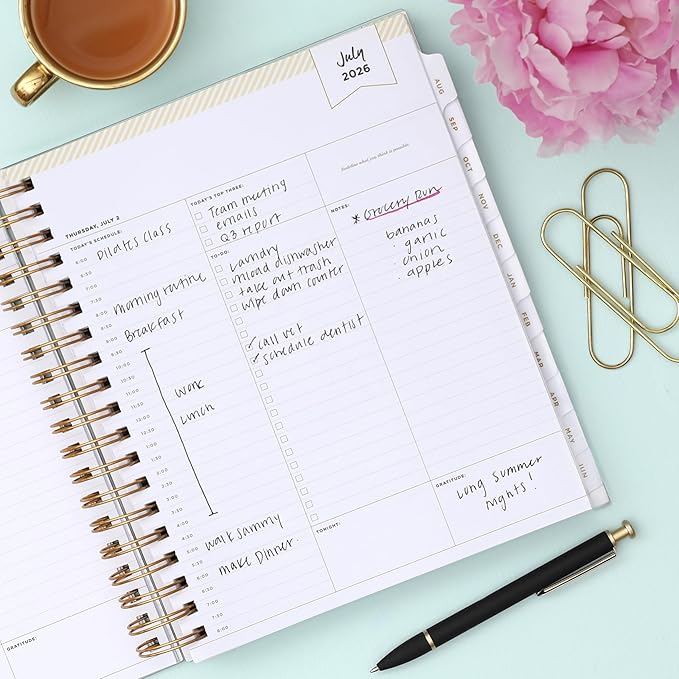 July
2026
AUG
SEP
OCT
NOV
DEC
JAN
FEB
MAR
APR
MAY
JUN
THURSDAY, JULY 2
TODAY'S SCHEDULE:
Pilates class
6:00
6:30
7:00
7:30
morning routine
8:00
8:30
Breakfast
9:00
9:30
10:00
10:30
11:00
11:30
12:00
work
12:30
Lunch
1:00
1:30
2:00
2:30
3:00
3:30
4:00
4:30
walk sammy
5:00
5:30
make Dinner.
6:00
6:30
7:00
7:30
8:00
TODAY'S TOP THREE:
Team meeting
emails
Q3 report
TO-DO:
laundry
unload dishwasher
take out trash
wipe down counter
✓ call vet
✓ schedule dentist
TONIGHT:
Redefine what you think is possible.
NOTES:
* Grocery Run
bananas
garlic
onion
apples
GRATITUDE:
Long summer
nights!
GRATITUDE: